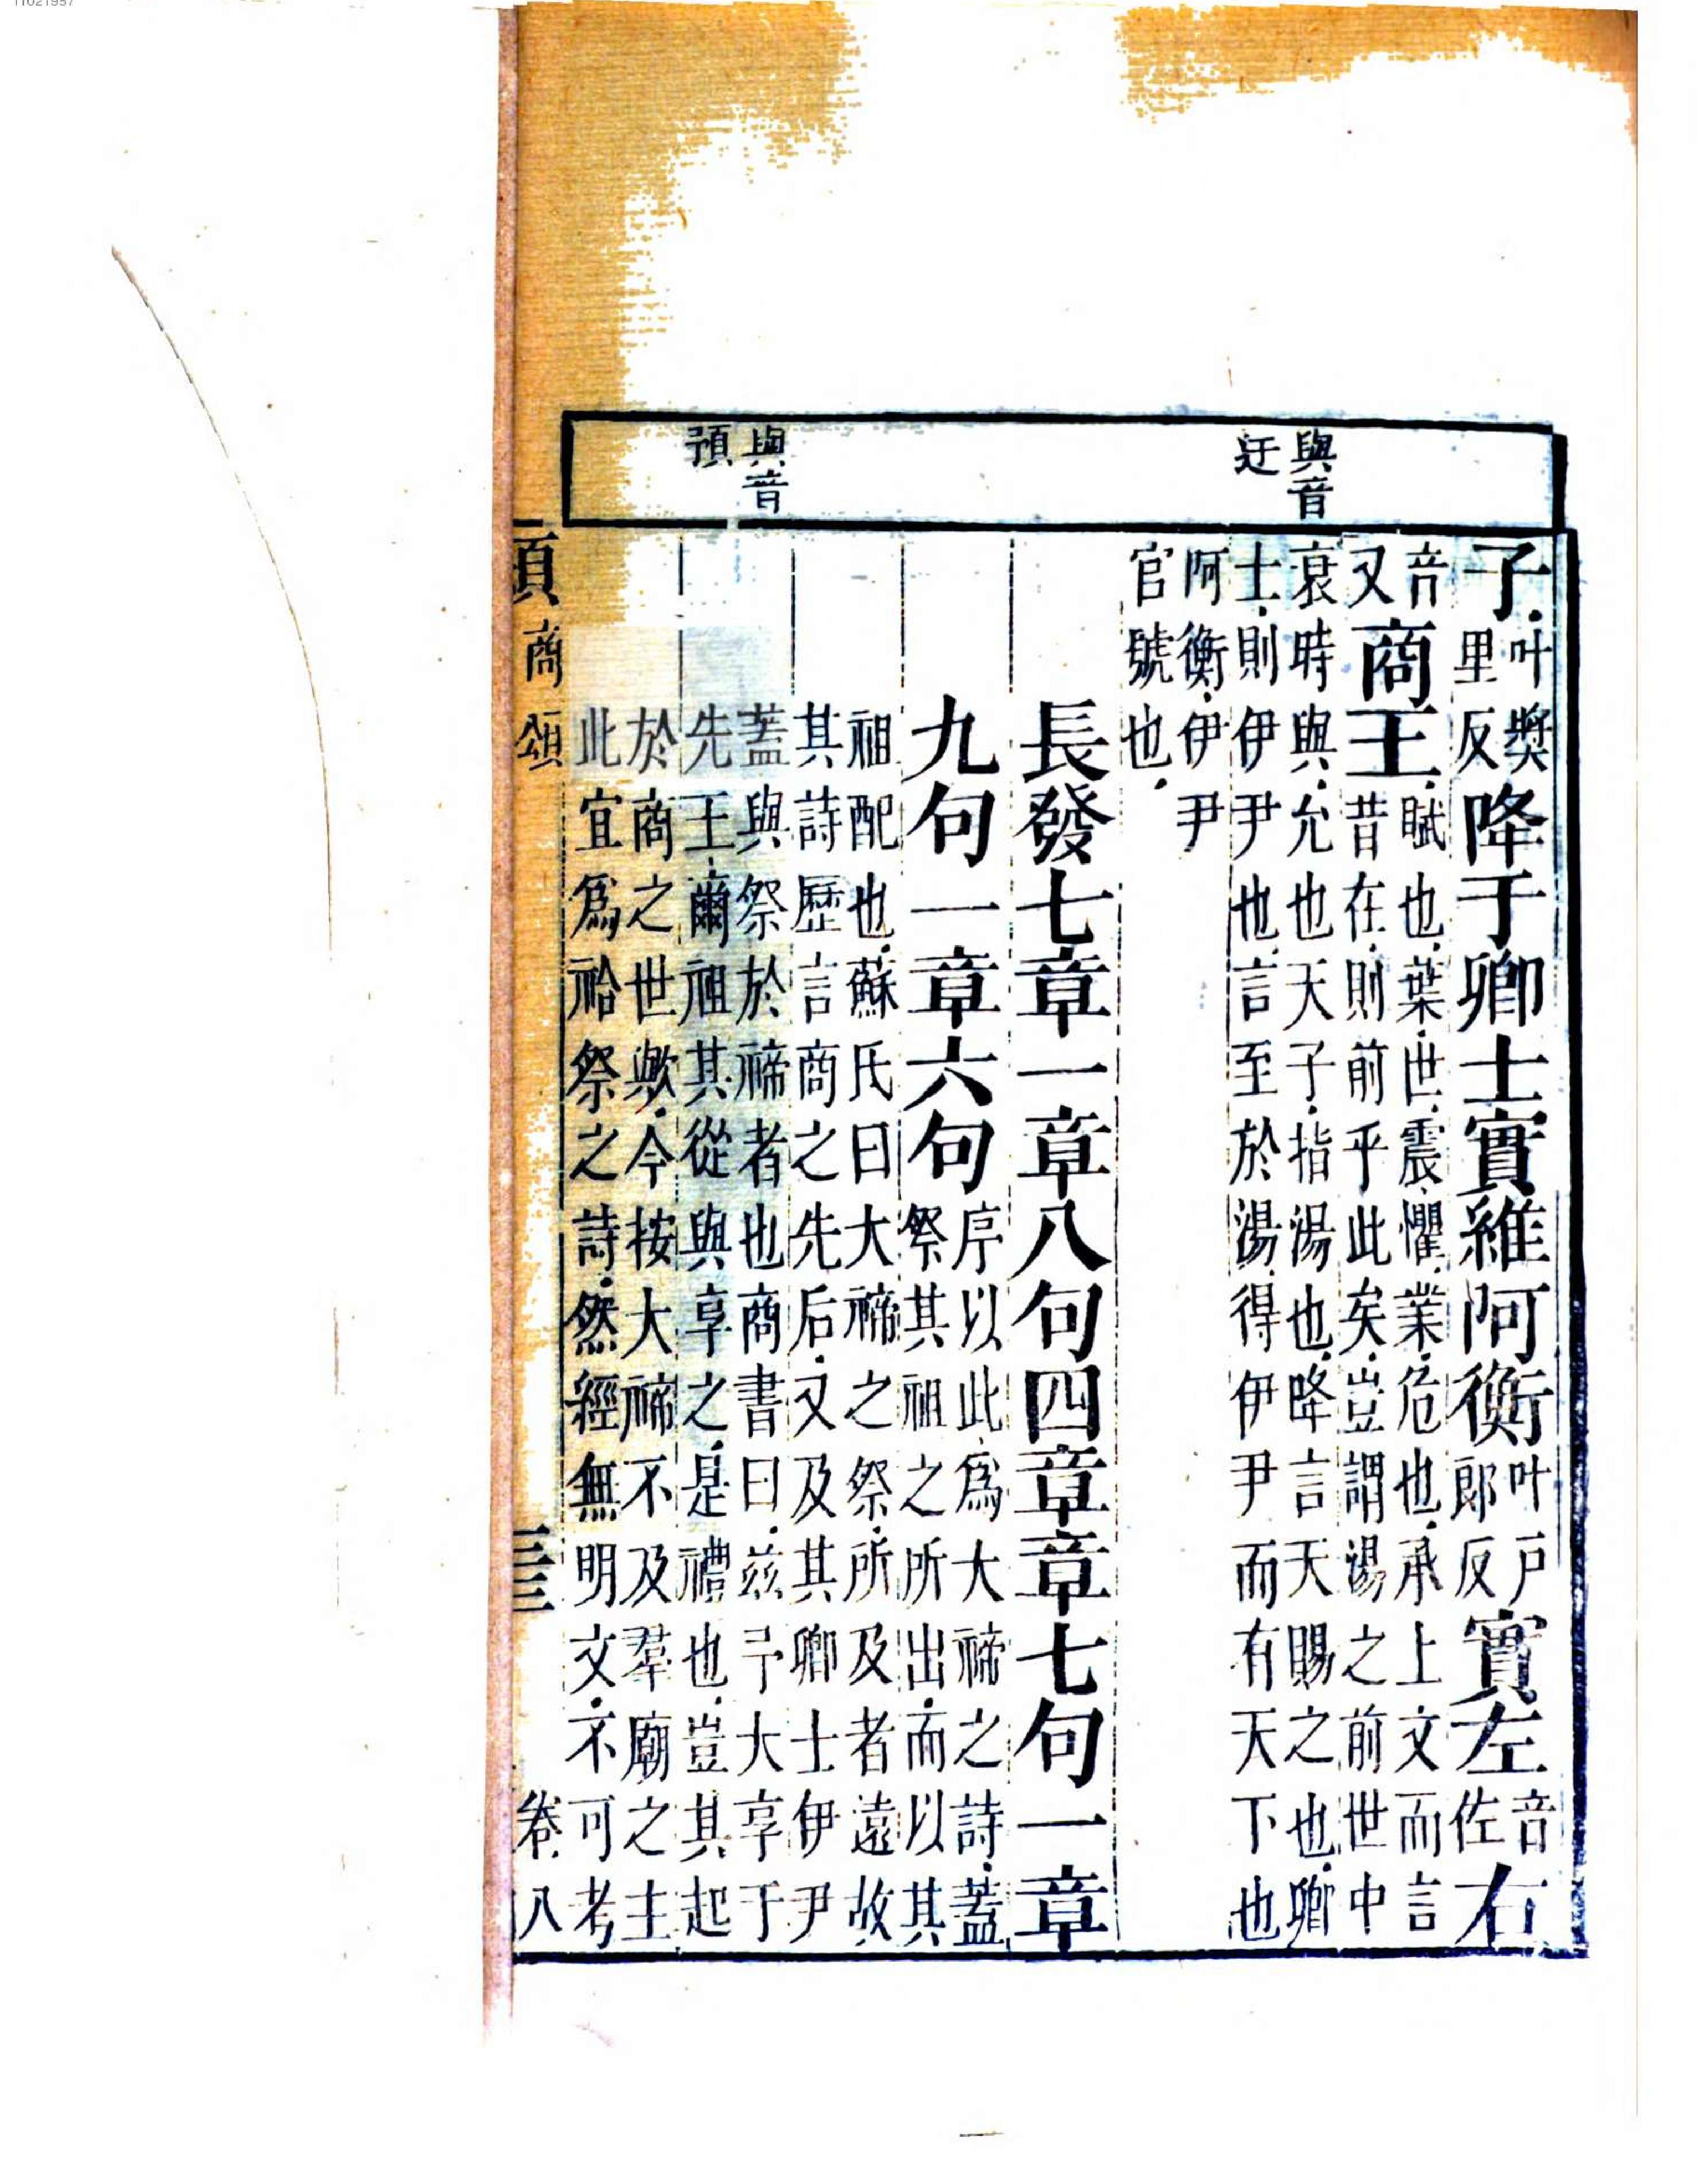 與音
迂
與音
預
子叶獎里反降于卿士實維阿衡叶戶郎反實左音佐右
音又商王賦也葉世震懼業危也承上文而言
昔在則前乎此矣豈謂湯之前世中
衰時與允也天子指湯也降言天賜之也卿
士則伊尹也言至於湯得伊尹而有天下也
阿衡伊尹
官號也
長發七章一章八句四章章七句一章
九句一章六句序以此爲大禘之詩蓋
祭其祖之所出而以其
祖配也蘇氏曰大禘之祭所及者遠故
其詩歷言商之先后又及其卿士伊尹
蓋與祭於禘者也商書曰兹予大享于
先王爾祖其從與享之是禮也豈其起
於商之世歟今按大禘不及羣廟之主
此宜爲祫祭之詩然經無明文不可考
商頌
卷八